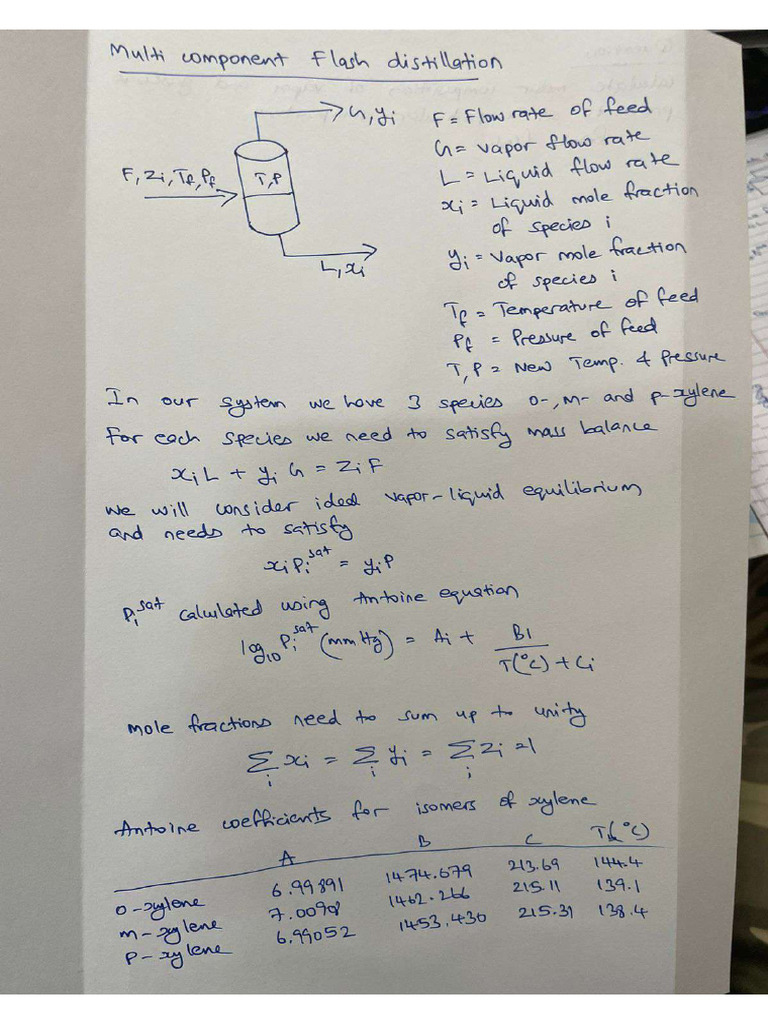 Multi component Flash distillation
G, yi
F, Zi, Tf, Pf
T, P
L, xi
F = Flow rate of feed
G = Vapor flow rate
L = Liquid flow rate
xi = Liquid mole fraction
of species i
yi = Vapor mole fraction
of species i
Tf = Temperature of feed
Pf = Pressure of feed
T, P = New Temp. & Pressure
In our system we have 3 species o-, m- and p-xylene
For each species we need to satisfy mass balance
xi L + yi G = Zi F
We will consider ideal vapor-liquid equilibrium
and needs to satisfy
xi Pi^sat = yi P
Pi^sat calculated using Antoine equation
log10 Pi^sat (mm Hg) = Ai + B1 / (T(°C) + Ci)
mole fractions need to sum up to unity
Σi xi = Σi yi = Σi Zi = 1
Antoine coefficients for isomers of xylene
A B C Tb(°C)
o-xylene 6.99891 1474.679 213.69 144.4
m-xylene 7.00908 1462.266 215.11 139.1
p-xylene 6.99052 1453.430 215.31 138.4